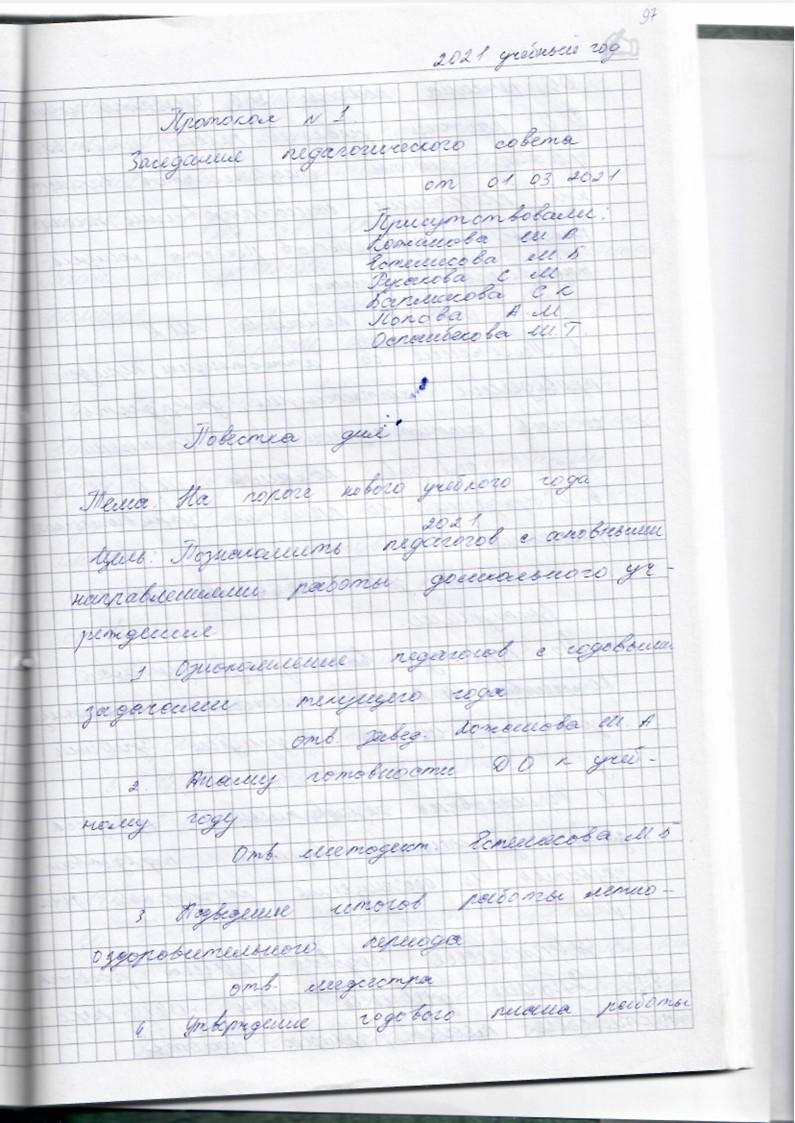 97
2021 учебный год
Протокол № 1
Заседания педагогического совета
от 01 03 2021
Присутствовали:
Кожанова Ш А
Естемесова М Б
С М
С К
Попова А.М
Оспанбекова Ш.Т.
Повестка дня
Тема: На пороге нового учебного года
2021
Цель: Познакомить педагогов с основными
направлениями работы дошкольного уч-
реждения
1 Ознокомление педагогов с годовыми
задачами текущего года
отв. завед. Кожанова Ш А
2. Анализ готовности ДО к учеб-
ному году
Отв. методист. Естемесова М Б
3 Подведение итогов работы летно-
оздоровительного периода
отв. медсестра
4 Утверждение годового плана работы